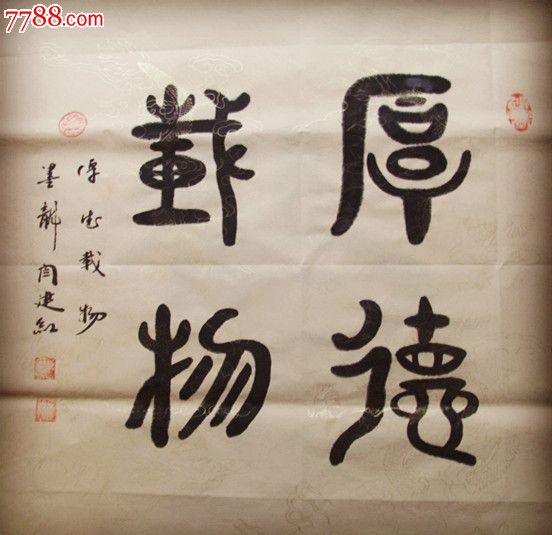 7788.com
厚德
載物
厚德载物
墨龍闫建红